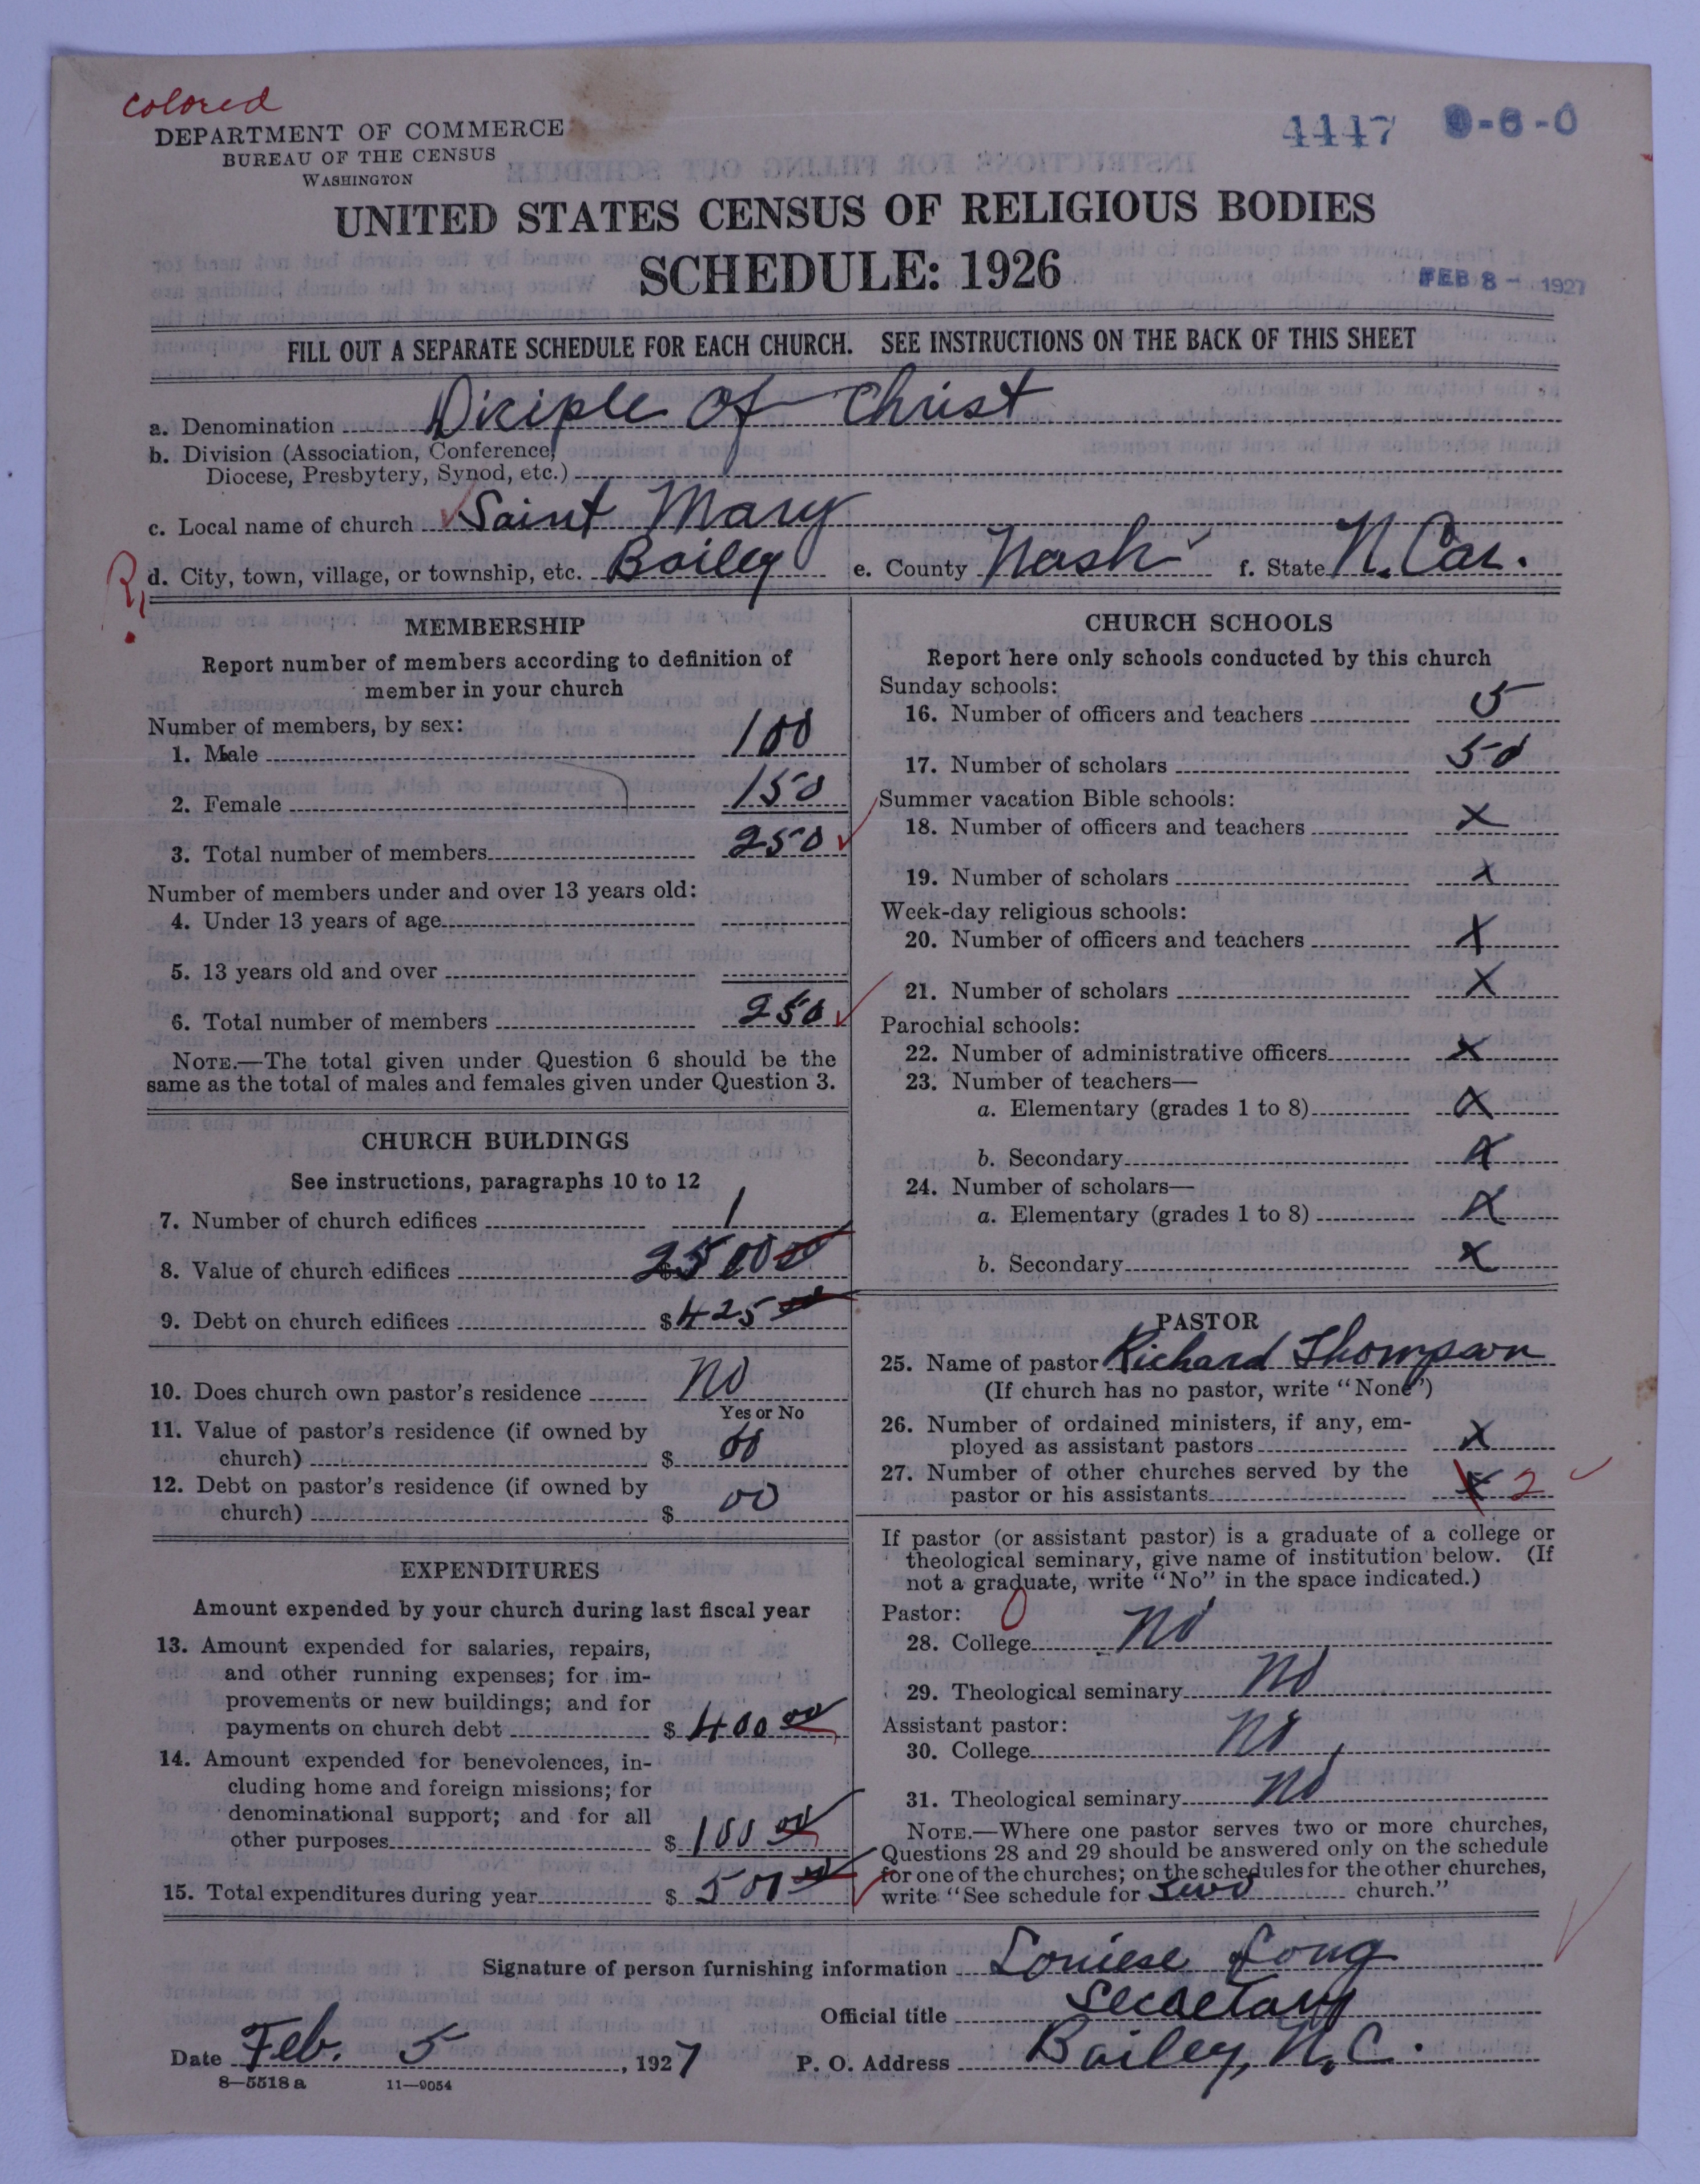 colored
DEPARTMENT OF COMMERCE
BUREAU OF THE CENSUS
WASHINGTON
4447 9-6-0
UNITED STATES CENSUS OF RELIGIOUS BODIES
SCHEDULE: 1926
FEB 8 - 1927
FILL OUT A SEPARATE SCHEDULE FOR EACH CHURCH. SEE INSTRUCTIONS ON THE BACK OF THIS SHEET
a. Denomination Diciple Of Christ
b. Division (Association, Conference,
Diocese, Presbytery, Synod, etc.)
c. Local name of church Saint Mary
R. d. City, town, village, or township, etc. Bailey e. County Nash f. State N. Car.
MEMBERSHIP
Report number of members according to definition of
member in your church
Number of members, by sex:
1. Male 100
2. Female 150
3. Total number of members 250
Number of members under and over 13 years old:
4. Under 13 years of age
5. 13 years old and over
6. Total number of members 250
NOTE.—The total given under Question 6 should be the
same as the total of males and females given under Question 3.
CHURCH BUILDINGS
See instructions, paragraphs 10 to 12
7. Number of church edifices 1
8. Value of church edifices $2500 00
9. Debt on church edifices $425 00
10. Does church own pastor's residence No
Yes or No
11. Value of pastor's residence (if owned by
church) $ 00
12. Debt on pastor's residence (if owned by
church) $ 00
EXPENDITURES
Amount expended by your church during last fiscal year
13. Amount expended for salaries, repairs,
and other running expenses; for im-
provements or new buildings; and for
payments on church debt $400 00
14. Amount expended for benevolences, in-
cluding home and foreign missions; for
denominational support; and for all
other purposes $100 00
15. Total expenditures during year $500 00
CHURCH SCHOOLS
Report here only schools conducted by this church
Sunday schools:
16. Number of officers and teachers 5
17. Number of scholars 50
Summer vacation Bible schools:
18. Number of officers and teachers X
19. Number of scholars X
Week-day religious schools:
20. Number of officers and teachers X
21. Number of scholars X
Parochial schools:
22. Number of administrative officers X
23. Number of teachers—
a. Elementary (grades 1 to 8) X
b. Secondary X
24. Number of scholars—
a. Elementary (grades 1 to 8) X
b. Secondary X
PASTOR
25. Name of pastor Richard Thompson
(If church has no pastor, write "None")
26. Number of ordained ministers, if any, em-
ployed as assistant pastors X
27. Number of other churches served by the
pastor or his assistants X 2
If pastor (or assistant pastor) is a graduate of a college or
theological seminary, give name of institution below. (If
not a graduate, write "No" in the space indicated.)
Pastor: 0
28. College No
29. Theological seminary No
Assistant pastor:
30. College No
31. Theological seminary No
NOTE.—Where one pastor serves two or more churches,
Questions 28 and 29 should be answered only on the schedule
for one of the churches; on the schedules for the other churches,
write "See schedule for two church."
Signature of person furnishing information Louiese Long
Official title Secretary
Date Feb. 5, 1927 P. O. Address Bailey, N.C.
8—5518 a 11—9054